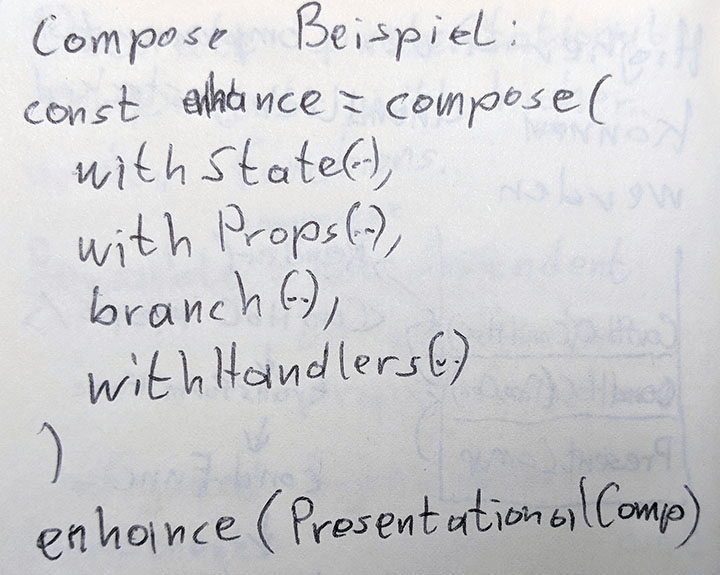 Compose Beispiel:
const enhance = compose(
withState(..),
withProps(..),
branch(..),
withHandlers(..)
)
enhance(PresentationalComp)